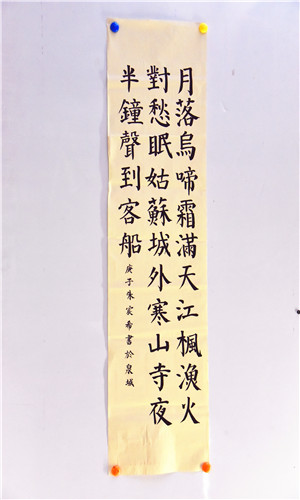 月落烏啼霜滿天江楓漁火
對愁眠姑蘇城外寒山寺夜
半鐘聲到客船
庚子朱宸希書於泉城